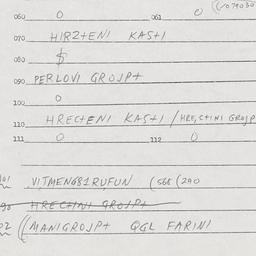 060 0 061 0 (1079030
070 HIRZTENI KASTI
080 $
090 PERLOVI GROJPT
100 0
110 HRECTENI KASTI / HRECTINI GROJP
111 0 112 0
101 VITMENG81RUFUN (568 (290
HRECTINI GROJPT
02 ((MANIGROJPT QGL FARINI